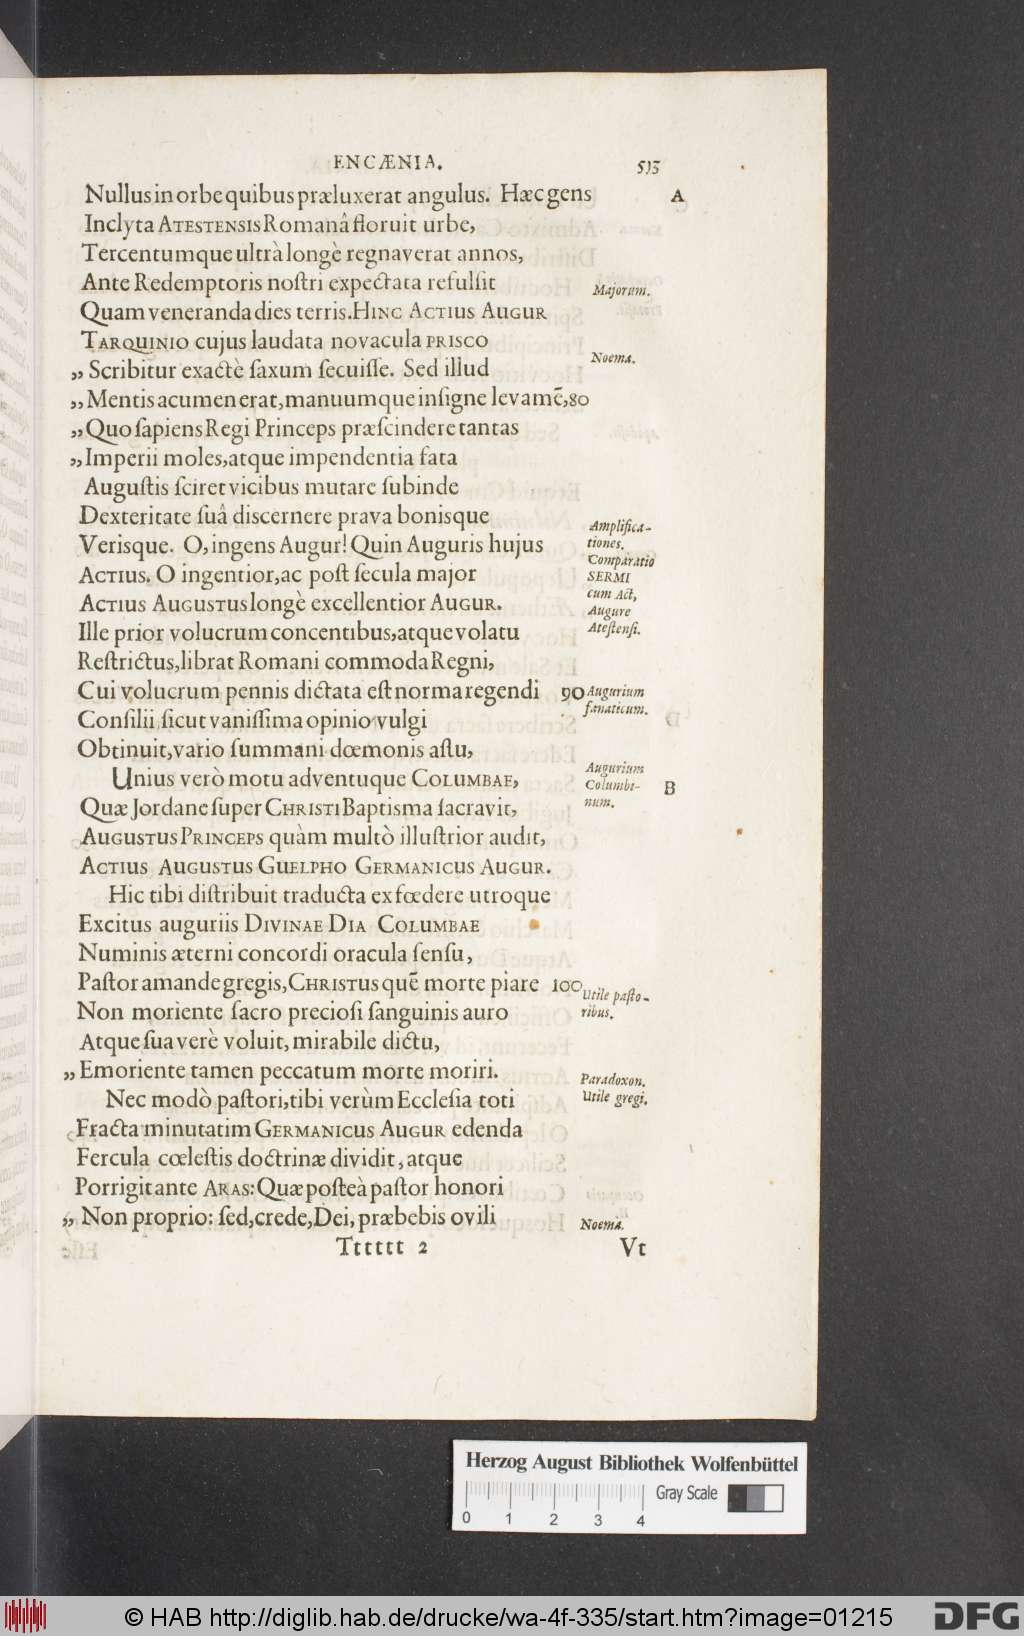 ENCÆNIA. 513
Nullus in orbe quibus præluxerat angulus. Hæc gens A
Inclyta ATESTENSIS Romanâ floruit urbe,
Tercentumque ultrà longè regnaverat annos,
Ante Redemptoris noſtri expectata refulſit
Majorum.
Quam veneranda dies terris. HINC ACTIUS AUGUR
TARQUINIO cujus laudata novacula PRISCO
Noema.
„ Scribitur exactè ſaxum ſecuiſſe. Sed illud
„ Mentis acumen erat, manuumque inſigne levamē, 80
„ Quo ſapiens Regi Princeps præſcindere tantas
„ Imperii moles, atque impendentia fata
Auguſtis ſciret vicibus mutare ſubinde
Dexteritate ſuâ discernere prava bonisque
Verisque. O, ingens Augur! Quin Auguris hujus
ACTIUS. O ingentior, ac poſt ſecula major
ACTIUS AUGUSTUS longè excellentior AUGUR.
Amplifica-
tiones.
Comparatio
SERMI
cum Act,
Augure
Ateſtenſi.
Ille prior volucrum concentibus, atque volatu
Reſtrictus, librat Romani commoda Regni,
Cui volucrum pennis dictata eſt norma regendi 90
Augurium
fanaticum.
Conſilii ſicut vaniſſima opinio vulgi
Obtinuit, vario ſummani dœmonis aſtu,
Unius verò motu adventuque COLUMBAE,
Augurium
Columbi-
num.
B
Quæ Jordane ſuper CHRISTI Baptisma ſacravit,
AUGUSTUS PRINCEPS quàm multò illuſtrior audit,
ACTIUS AUGUSTUS GUELPHO GERMANICUS AUGUR.
Hic tibi diſtribuit traducta ex fœdere utroque
Excitus auguriis DIVINAE DIA COLUMBAE
Numinis æterni concordi oracula ſenſu,
Paſtor amande gregis, CHRISTUS quē morte piare 100
Utile paſto-
ribus.
Non moriente ſacro precioſi ſanguinis auro
Atque ſua verè voluit, mirabile dictu,
„ Emoriente tamen peccatum morte moriri.
Paradoxon.
Nec modò paſtori, tibi verùm Eccleſia toti
Utile gregi.
Fracta minutatim GERMANICUS AUGUR edenda
Fercula cœleſtis doctrinæ dividit, atque
Porrigit ante ARAS: Quæ poſteà paſtor honori
„ Non proprio: ſed, crede, Dei, præbebis ovili
Noema.
Tttttt 2 Vt
Herzog August Bibliothek Wolfenbüttel
Gray Scale
0 1 2 3 4
© HAB http://diglib.hab.de/drucke/wa-4f-335/start.htm?image=01215
DFG